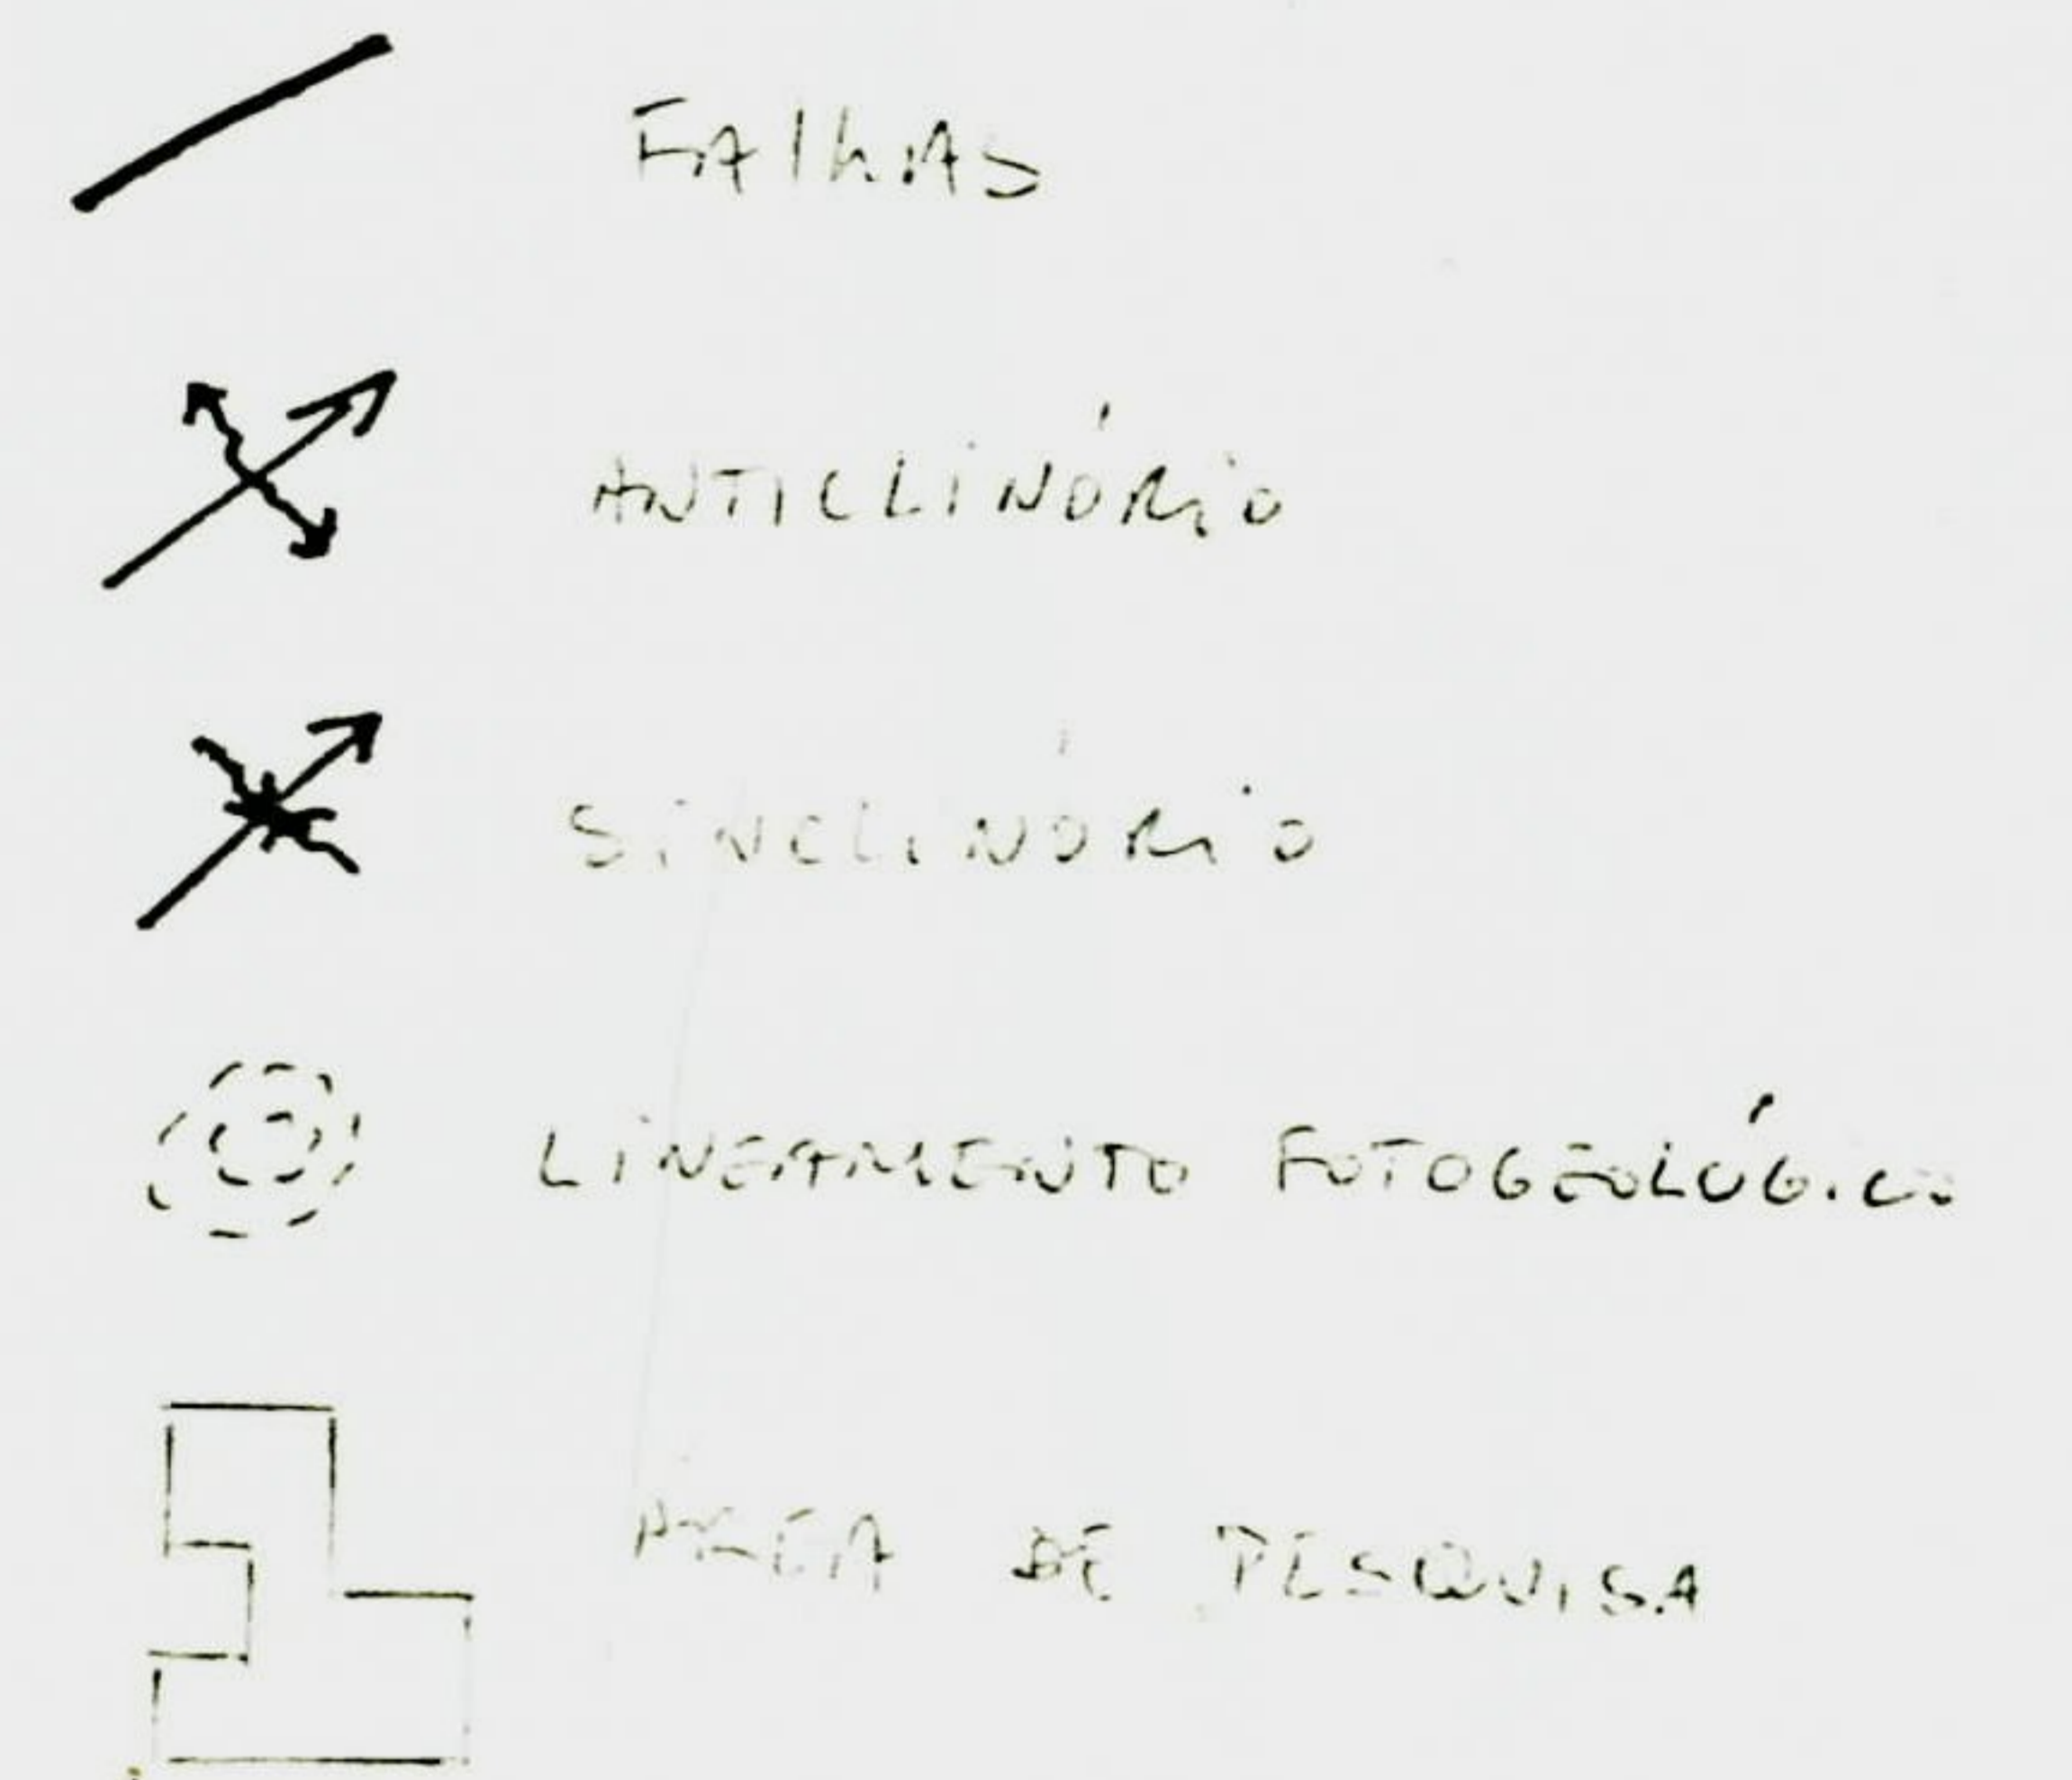 FAlhAS
ANTICLiNÓRiO
SiNCLiNÓRiO
LiNEAMENTO FOTOGEOLÓGiCo
ÁREA DE PESQUiSA